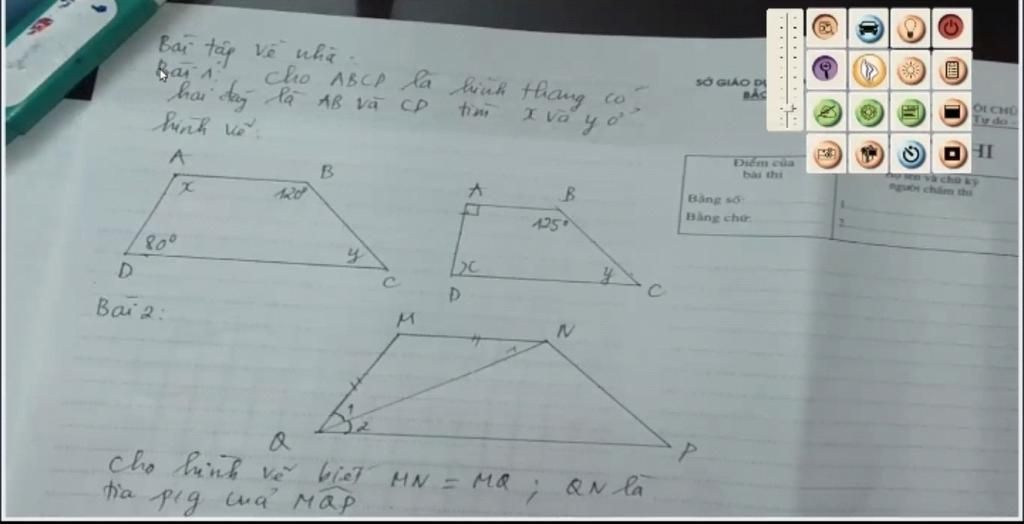 Bài tập về nhà.
Bài 1: Cho ABCD là hình thang có
hai đáy là AB và CD tìm x và y ở
hình vẽ:
A
B
x
120°
80°
y
D
C
A
B
125°
x
y
D
C
Bài 2:
M
N
1
1
2
Q
P
Cho hình vẽ biết MN = MQ; QN là
tia p/g của MQP
SỞ GIÁO
BẮC
Tự do -
Điểm của
bài thi
Bằng số:
Bằng chữ:
tên và chữ ký
người chấm thi
1
2